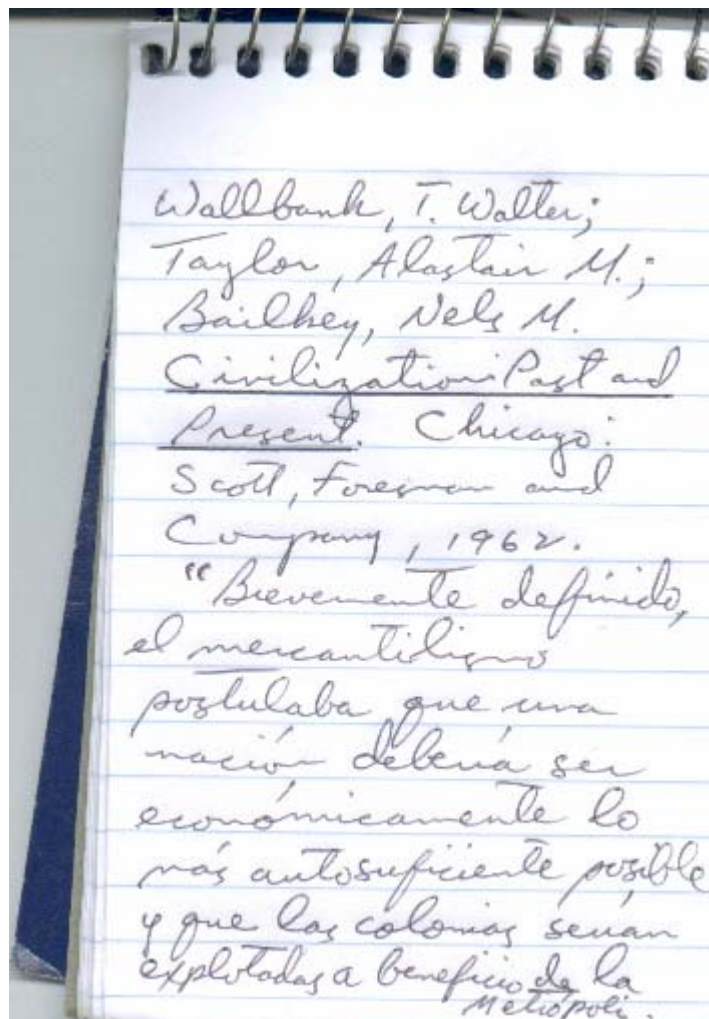 Wallbank, T. Walter;
Taylor, Alastair M.;
Bailkey, Nels M.
Civilization: Past and
Present. Chicago:
Scott, Foresman and
Company, 1962.
"Brevemente definido,
el mercantilismo
postulaba que una
nación debería ser
económicamente lo
más autosuficiente posible
y que las colonias serían
explotadas a beneficio de la
Metrópoli.